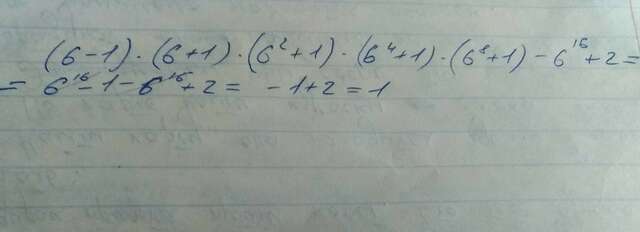 (6-1)·(6+1)·(6²+1)·(6⁴+1)·(6⁸+1)-6¹⁶+2=
= 6¹⁶-1-6¹⁶+2= -1+2=1